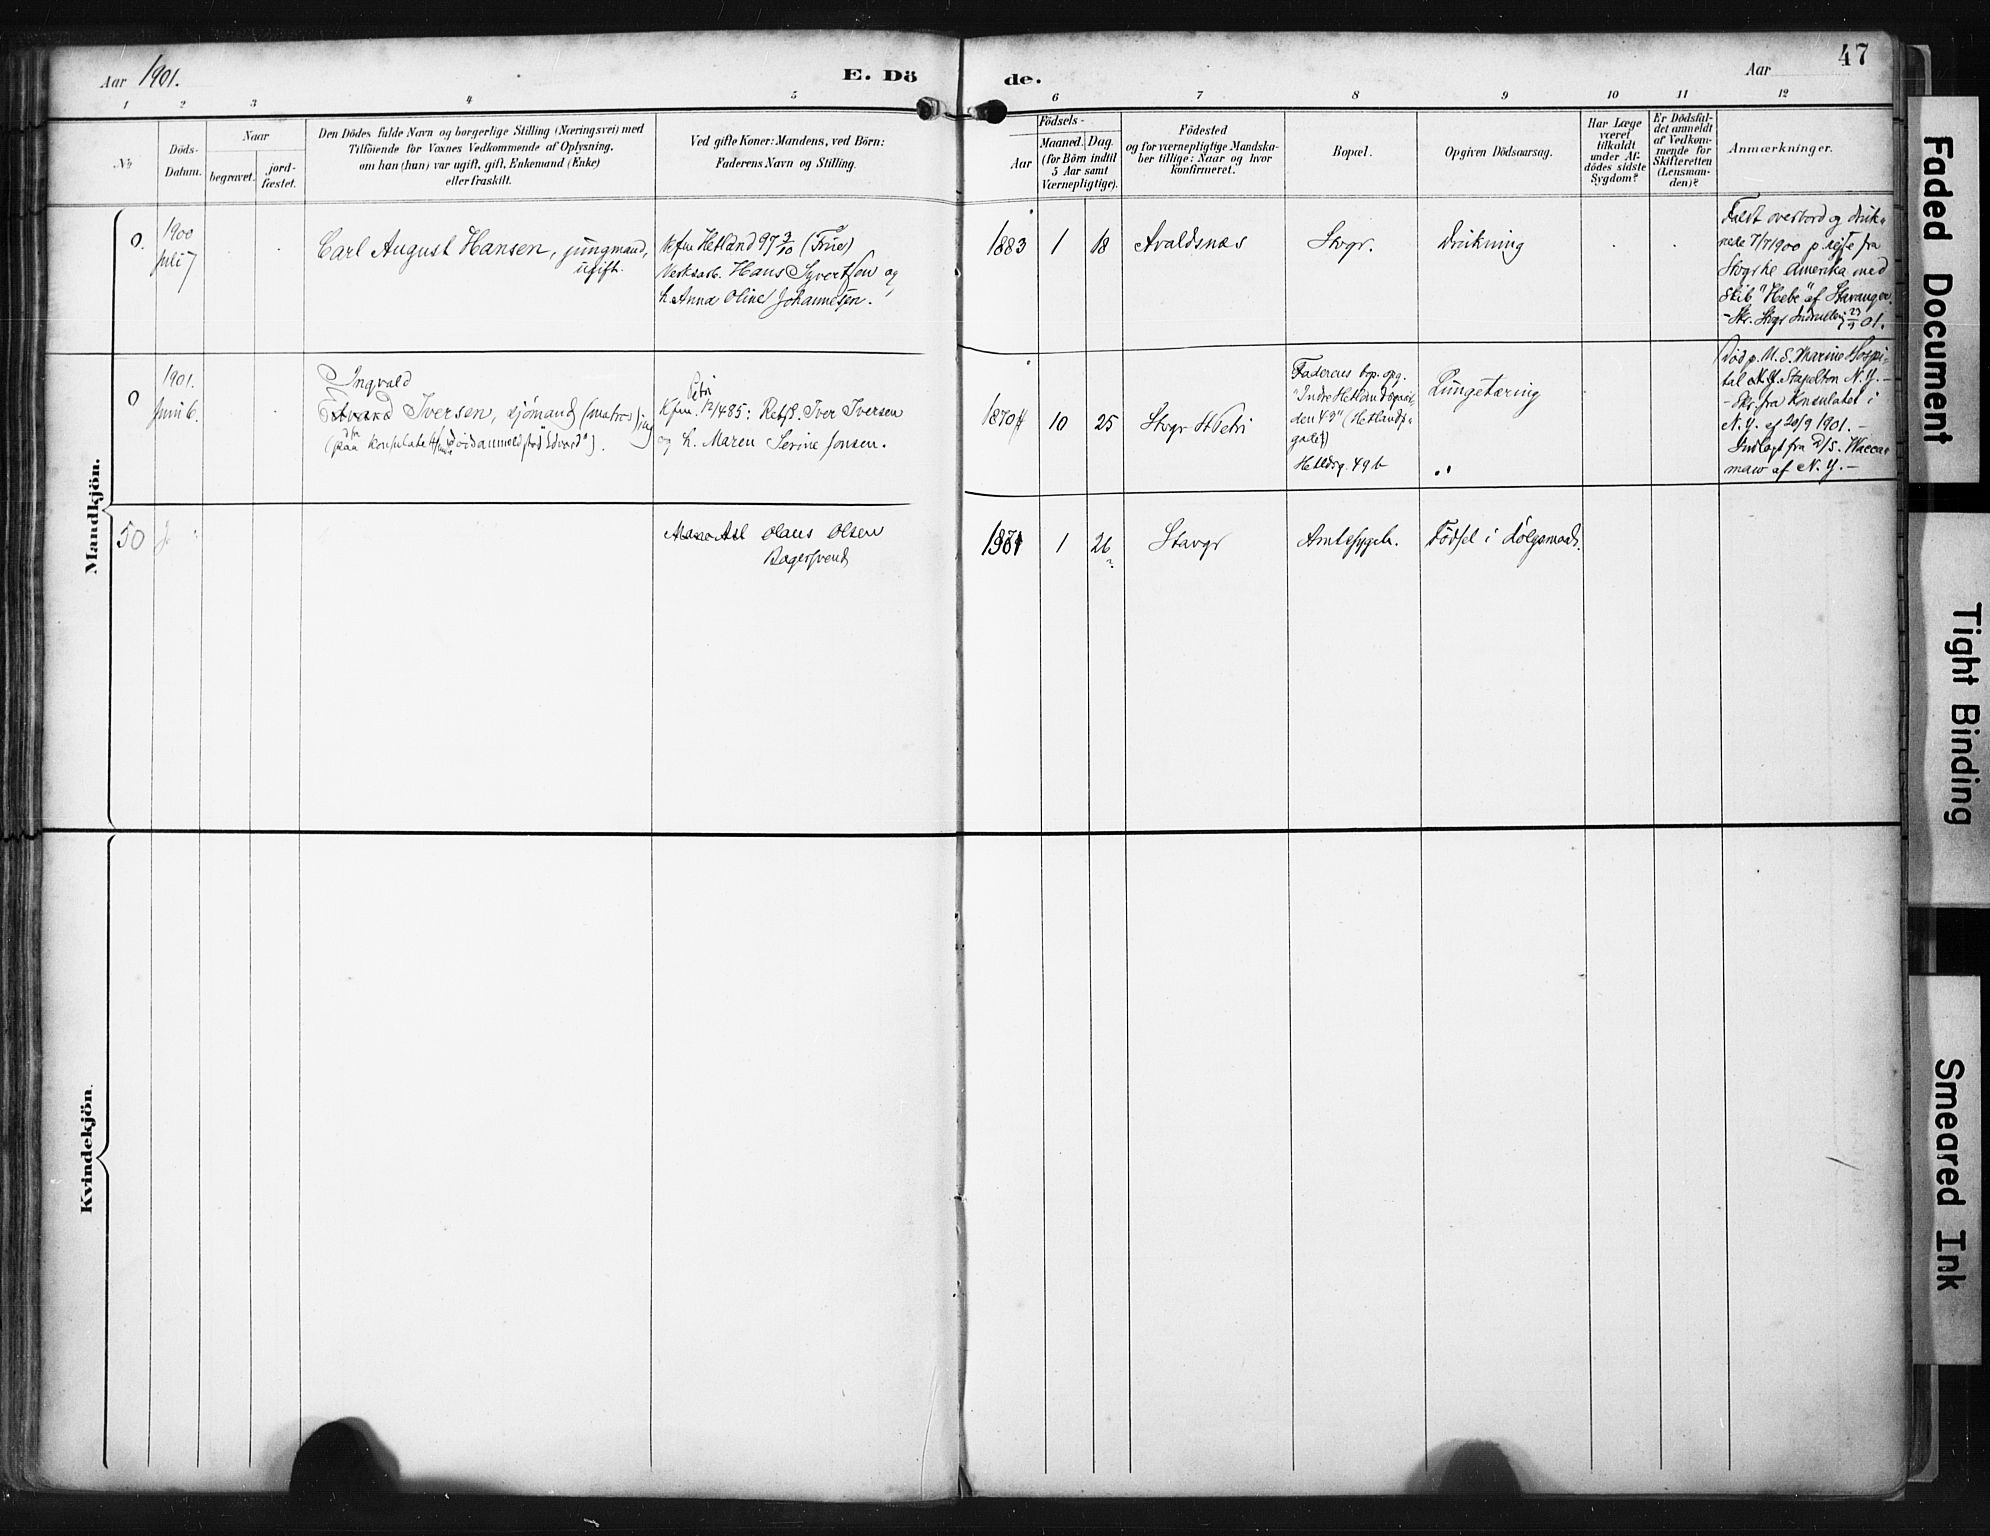 Aar 1901.
E. Dö
de.
Aar
47
1 2 3 4 5 6 7 8 9 10 11 12
No
Döds-
Datum.
Naar
begravet.
jord-
fæstet.
Den Dödes fulde Navn og borgerlige Stilling (Næringsvei) med
Tilföiende for Voxnes Vedkommende af Oplysning,
om han (hun) var ugift, gift, Enkemand (Enke)
eller fraskilt.
Ved gifte Koner: Mandens, ved Börn:
Faderens Navn og Stilling.
Födsels-
Aar
Maaned. Dag.
(for Börn indtil
5 Aar samt
Værnepligtige).
Födested
og for værnepligtige Mandska-
ber tillige: Naar og hvor
konfirmeret.
Bopæl.
Opgiven Dödsaarsag.
Har Læge
været
tilkaldt
under Af-
dödes sidste
Sygdom?
Er Dödsfal-
det anmeldt
af Vedkom-
mende for
Skifteretten
(Lensman-
den)?
Anmærkninger.
Mandkjön.
0.
1900
Juli 7
Carl August Hansen, jungmand,
ugift.
Kfm Hetland 97 3/10 (Frue)
Verksarb. Hans Syvertsen og
h. Anna Oline Johannesen.
1883 1 18
Avaldsnæs
Stvgr.
Drukning
Faldt overbord og druk-
nede 7/7 1900 p. rejse fra
Stvgr til Amerika med
Skib "Hebe" af Stavanger.
0
1901.
Juni 6.
Ingvald
Iversen, sjömand (matros)
Petri
Kfm. 12/4 85: Rebsl. Iver Iversen
og h. Maren Serine Jonsen.
1870 10 25
Stvgr St Petri
Faderens bop. opg.
Hetldsg. 49 b
Lungetæring
Död p. U. S. Marine Hospi-
tal Stapelton N.Y. -
- Skr. fra Konsulatet i
N.Y. af 20/9 1901. -
Indlagt fra D/S. Wacca-
maw af N.Y. -
50
Olaus Olsen
Bagersvend
1901 1 26
Stavgr
Amtssygeh.
Födsel i
Kvindekjön.
Faded Document
Tight Binding
Smeared Ink